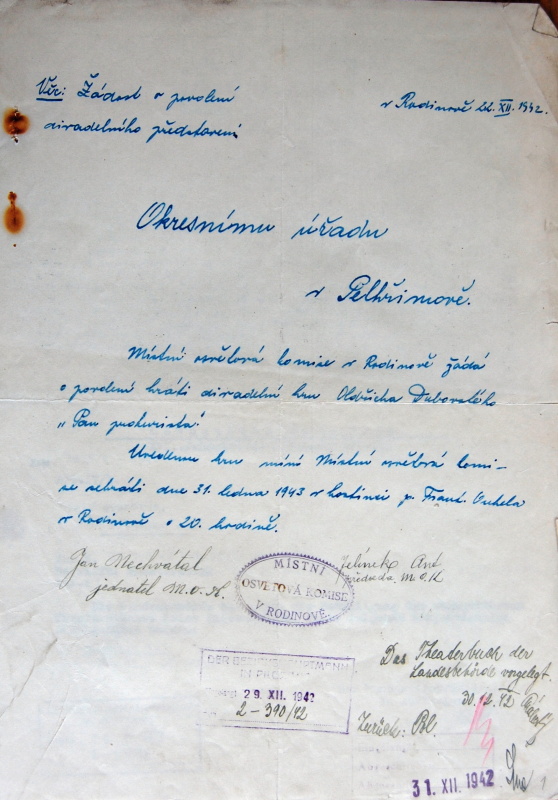 Věc: Žádost o povolení
divadelního představení
v Rodinově 22. XII. 1942.
Okresnímu úřadu
v Pelhřimově.
Místní osvětová komise v Rodinově žádá
o povolení hráti divadelní hru Oldřicha Dubovského
"Pan prokurista".
Uvedenou hru míní Místní osvětová komi-
se sehráti dne 31. ledna 1943 v hostinci p. Frant.
v Rodinově o 20. hodině.
Jan Nechvátal
jednatel M.O.K.
MÍSTNÍ
OSVĚTOVÁ KOMISE
V RODINOVĚ.
Jelínek Ant.
předseda M.O.K
DER BEZIRKSHAUPTMANN
29. XII. 1942
2-390/42
Das Theaterbuch der
Landesbehörde vorgelegt.
30.12.42
Zurück: Pol.
31. XII. 1942